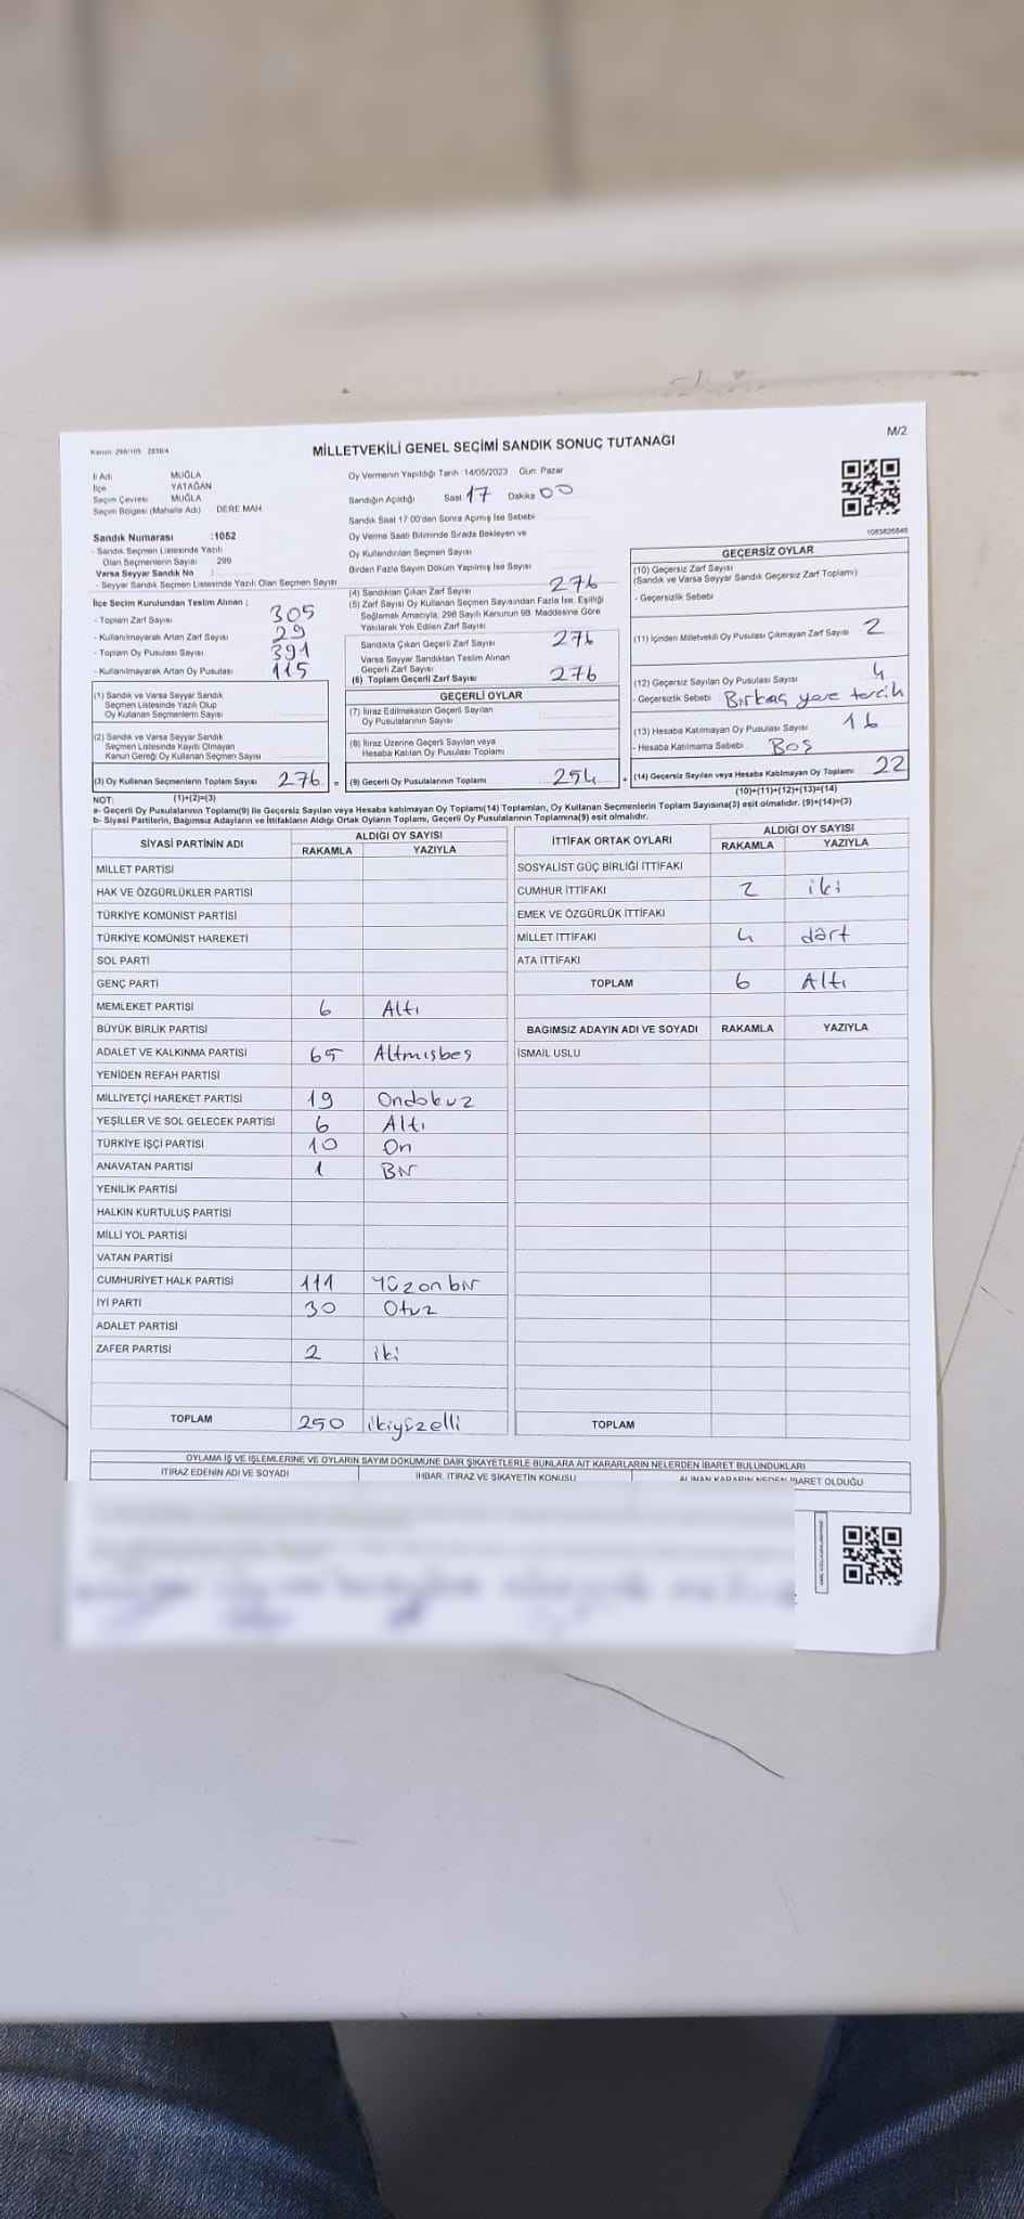 Kanun: 298/105 283/4
M/2
MİLLETVEKİLİ GENEL SEÇİMİ SANDIK SONUÇ TUTANAĞI
İl Adı MUĞLA
İlçe YATAĞAN
Seçim Çevresi MUĞLA
Seçim Bölgesi (Mahalle Adı) DERE MAH.
Sandık Numarası :1052
- Sandık Seçmen Listesinde Yazılı
Olan Seçmenlerin Sayısı 299
Varsa Seyyar Sandık No :
- Seyyar Sandık Seçmen Listesinde Yazılı Olan Seçmen Sayısı
İlçe Seçim Kurulundan Teslim Alınan ;
- Toplam Zarf Sayısı 305
- Kullanılmayarak Artan Zarf Sayısı 29
- Toplam Oy Pusulası Sayısı 391
- Kullanılmayarak Artan Oy Pusulası 115
(1) Sandık ve Varsa Seyyar Sandık
Seçmen Listesinde Yazılı Olup
Oy Kullanan Seçmenlerin Sayısı
(2) Sandık ve Varsa Seyyar Sandık
Seçmen Listesinde Kayıtlı Olmayan
Kanun Gereği Oy Kullanan Seçmen Sayısı
(3) Oy Kullanan Seçmenlerin Toplam Sayısı 276 =
(1)+(2)=(3)
Oy Vermenin Yapıldığı Tarih :14/05/2023 Gün: Pazar
Sandığın Açıldığı Saat 17 Dakika 00
Sandık Saat 17:00'den Sonra Açılmış İse Sebebi
Oy Verme Saati Bitiminde Sırada Bekleyen ve
Oy Kullandırılan Seçmen Sayısı
Birden Fazla Sayım Döküm Yapılmış İse Sayısı
(4) Sandıktan Çıkan Zarf Sayısı 276
(5) Zarf Sayısı Oy Kullanan Seçmen Sayısından Fazla İse, Eşitliği
Sağlamak Amacıyla, 298 Sayılı Kanunun 98. Maddesine Göre
Yakılarak Yok Edilen Zarf Sayısı
Sandıkta Çıkan Geçerli Zarf Sayısı 276
Varsa Seyyar Sandıktan Teslim Alınan
Geçerli Zarf Sayısı
(6) Toplam Geçerli Zarf Sayısı 276
GEÇERLİ OYLAR
(7) İtiraz Edilmeksizin Geçerli Sayılan
Oy Pusulalarının Sayısı
(8) İtiraz Üzerine Geçerli Sayılan veya
Hesaba Katılan Oy Pusulası Toplamı
(9) Geçerli Oy Pusulalarının Toplamı 254 +
1083826848
GEÇERSİZ OYLAR
(10) Geçersiz Zarf Sayısı
(Sandık ve Varsa Seyyar Sandık Geçersiz Zarf Toplamı)
- Geçersizlik Sebebi
(11) İçinden Milletvekili Oy Pusulası Çıkmayan Zarf Sayısı 2
(12) Geçersiz Sayılan Oy Pusulası Sayısı 4
- Geçersizlik Sebebi Birkaç yere tercih
(13) Hesaba Katılmayan Oy Pusulası Sayısı 16
- Hesaba Katılmama Sebebi Boş
(14) Geçersiz Sayılan veya Hesaba Katılmayan Oy Toplamı 22
(10)+(11)+(12)+(13)=(14)
NOT:
a- Geçerli Oy Pusulalarının Toplamı(9) ile Geçersiz Sayılan veya Hesaba katılmayan Oy Toplamı(14) Toplamları, Oy Kullanan Seçmenlerin Toplam Sayısına(3) eşit olmalıdır. (9)+(14)=(3)
b- Siyasi Partilerin, Bağımsız Adayların ve İttifakların Aldığı Ortak Oyların Toplamı, Geçerli Oy Pusulalarının Toplamına(9) eşit olmalıdır.
SİYASİ PARTİNİN ADI ALDIĞI OY SAYISI
RAKAMLA YAZIYLA
MİLLET PARTİSİ
HAK VE ÖZGÜRLÜKLER PARTİSİ
TÜRKİYE KOMÜNİST PARTİSİ
TÜRKİYE KOMÜNİST HAREKETİ
SOL PARTİ
GENÇ PARTİ
MEMLEKET PARTİSİ 6 Altı
BÜYÜK BİRLİK PARTİSİ
ADALET VE KALKINMA PARTİSİ 65 Altmışbeş
YENİDEN REFAH PARTİSİ
MİLLİYETÇİ HAREKET PARTİSİ 19 Ondokuz
YEŞİLLER VE SOL GELECEK PARTİSİ 6 Altı
TÜRKİYE İŞÇİ PARTİSİ 10 On
ANAVATAN PARTİSİ 1 Bir
YENİLİK PARTİSİ
HALKIN KURTULUŞ PARTİSİ
MİLLİ YOL PARTİSİ
VATAN PARTİSİ
CUMHURİYET HALK PARTİSİ 111 Yüzonbir
İYİ PARTİ 30 Otuz
ADALET PARTİSİ
ZAFER PARTİSİ 2 iki
TOPLAM 250 ikiyüzelli
İTTİFAK ORTAK OYLARI ALDIĞI OY SAYISI
RAKAMLA YAZIYLA
SOSYALİST GÜÇ BİRLİĞİ İTTİFAKI
CUMHUR İTTİFAKI 2 iki
EMEK VE ÖZGÜRLÜK İTTİFAKI
MİLLET İTTİFAKI 4 dört
ATA İTTİFAKI
TOPLAM 6 Altı
BAĞIMSIZ ADAYIN ADI VE SOYADI RAKAMLA YAZIYLA
İSMAİL USLU
TOPLAM
OYLAMA İŞ VE İŞLEMLERİNE VE OYLARIN SAYIM DÖKÜMÜNE DAİR ŞİKAYETLERLE BUNLARA AİT KARARLARIN NELERDEN İBARET BULUNDUKLARI
İTİRAZ EDENİN ADI VE SOYADI İHBAR, İTİRAZ VE ŞİKAYETİN KONUSU ALINAN KARARIN NEDEN İBARET OLDUĞU